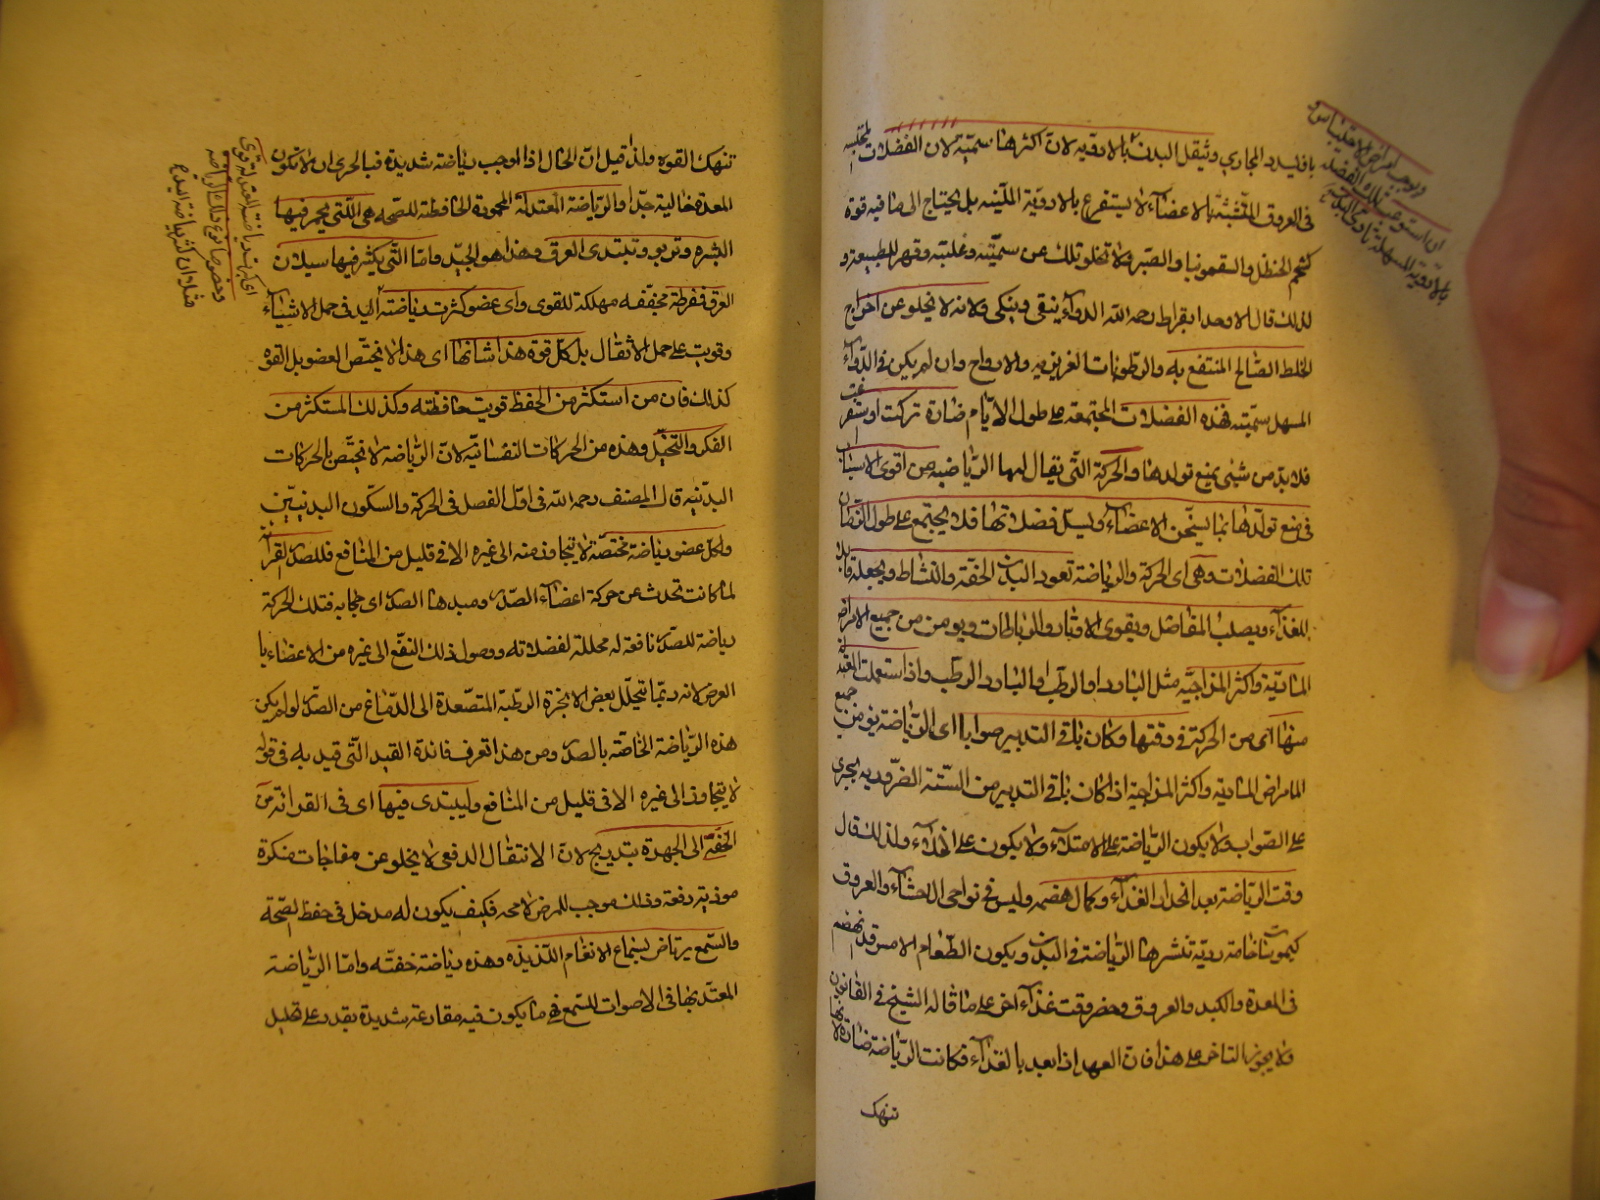 بافساد المجاري وتثقل البدن بالادوية لان اكثرها سمية لان الفضلات المحتبسة
في العروق المتشبثة بالاعضاء لا يستفرغ بالادوية الملينة بل يحتاج الى ما فيه قوة
كشحم الحنظل والسقمونيا والصبر ولا تخلو تلك عن سميته وغلبته وقهر للطبيعة و
لذلك قال الاوحد ابقراط رحمه الله الدواء ينقي وينكي ولانه لا يخلو عن اخراج
الخلط الصالح المنتفع به والرطوبات الغريزيه والارواح وان لم يكن في الدواء
المسهل سميته فهذه الفضلات المجتمعة على طول الايام ضارة تركت او استفرغت
فلا بد من شيئ يمنع تولدها والحركة التي يقال لها الرياضيه من اقوى الاسباب
في منع تولدها بما يسخن الاعضاء ويسيل فضلاتها فلا يجتمع على طول الزمان
تلك الفضلات وهي اى الحركة والرياضة تعود البدن الخفة والنشاط ويجعله قابلا
للغذاء ويصلب المفاصل ويقوى الاوتار والرباطات ويومن من جميع الامراض
المادية واكثر المزاجيه مثل البارد او الرطب او البارد الرطب واذا استعملت المعتدلة
منها اى من الحركة في وقتها وكان باقي التدبير صوابا اى الرياضة يومن من جميع
الامراض المادية واكثر المزاجية اذا كان باقي التدبير من الستة الضرورية يجرى
على الصواب ولا يكون الرياضة على الامتلاء ولا يكون على الخلاء ولذلك قال
وقت الرياضة بعد انحدار الغذاء وكمال هضمه وليس في نواحي الاحشاء والعروق
كيموسات خامة ردية تنشرها الرياضة في البدن ويكون الطعام الامس قد انهضم
في المعدة والكبد والعروق وحضر وقت غذاء اخر على ما قاله الشيخ في القانون
ولا يجوز التاخر على هذا فان العهد اذا بعد بالغذاء فكانت الرياضة ضارة لانها
تنهك
ويوجب امراض الاحتباس و
ان استفرغت تلك الفضلات
بالادوية المسهلة تاذى البدن
تنهك القوه ولذا قيل ان الحال اذا اوجب رياضة شديدة فبالحرى ان لا تكون
المعدة خالية جدا والرياضة المعتدلة المحمودة الحافظة للصحه هي التي يحمر فيها
البشره وتربو وتبتدى العرق وهذا هو الجيد واما التي يكثر فيها سيلان
العرق ففرطة مجففه مهلكة للقوى واى عضو كثرت رياضته اليد في حمل الاشياء
وقويت على حمل الاثقال بل كل قوة هذا شانها اى هذا لا يختص العضو بل القوه
كذلك فان من استكثر من الحفظ قويت حافظته وكذلك المستكثر من
الفكر والتخيل وهذه من الحركات النفسانية لان الرياضة لا يختص بالحركات
البدنيه قال المصنف رحمه الله في اول الفصل في الحركة والسكون البدنيين
ولكل عضو رياضة مختصة لا يتجاوز منه الى غيره الا في قليل من المنافع فللصدر القرائة
لما كانت تحدث عن حركة اعضاء الصدر ومبدها الصدر اى حجابه فتلك الحركة
رياضة للصدر نافعة له محللة لفضلاته ووصول ذلك النفع الى غيره من الاعضاء با
العرض لانه ربما تتحلل بعض الابخرة الرطبة المتصعدة الى الدماغ من الصدر لو لم يكن
هذه الرياضة الخاصة بالصدر ومن هذا تعرف فائدة القيد التي قيد به في قوله
لا يتجاوز الى غيره الا في قليل من المنافع وليبتدى فيها اى في القرائة من
الخفية الى الجهدة بتدريج لان الانتقال الدفعي لا يخلو عن مفاجات منكرة
موذية دفعة وذلك موجب للمرض لا محه فكيف يكون له مدخل في حفظ الصحة
والسمع يرتاض بسماع الانغام اللذيذه وهذه رياضة خفته واما الرياضة
المعتد بها في الاصوات للسمع فهي ما يكون فيه مقارعة شديدة بقدر على قليل
اى بكثرت رياضة العضو قوى
وخصوصا نوع تلك الرياضة
مثلا ان لرياضة اليد مع